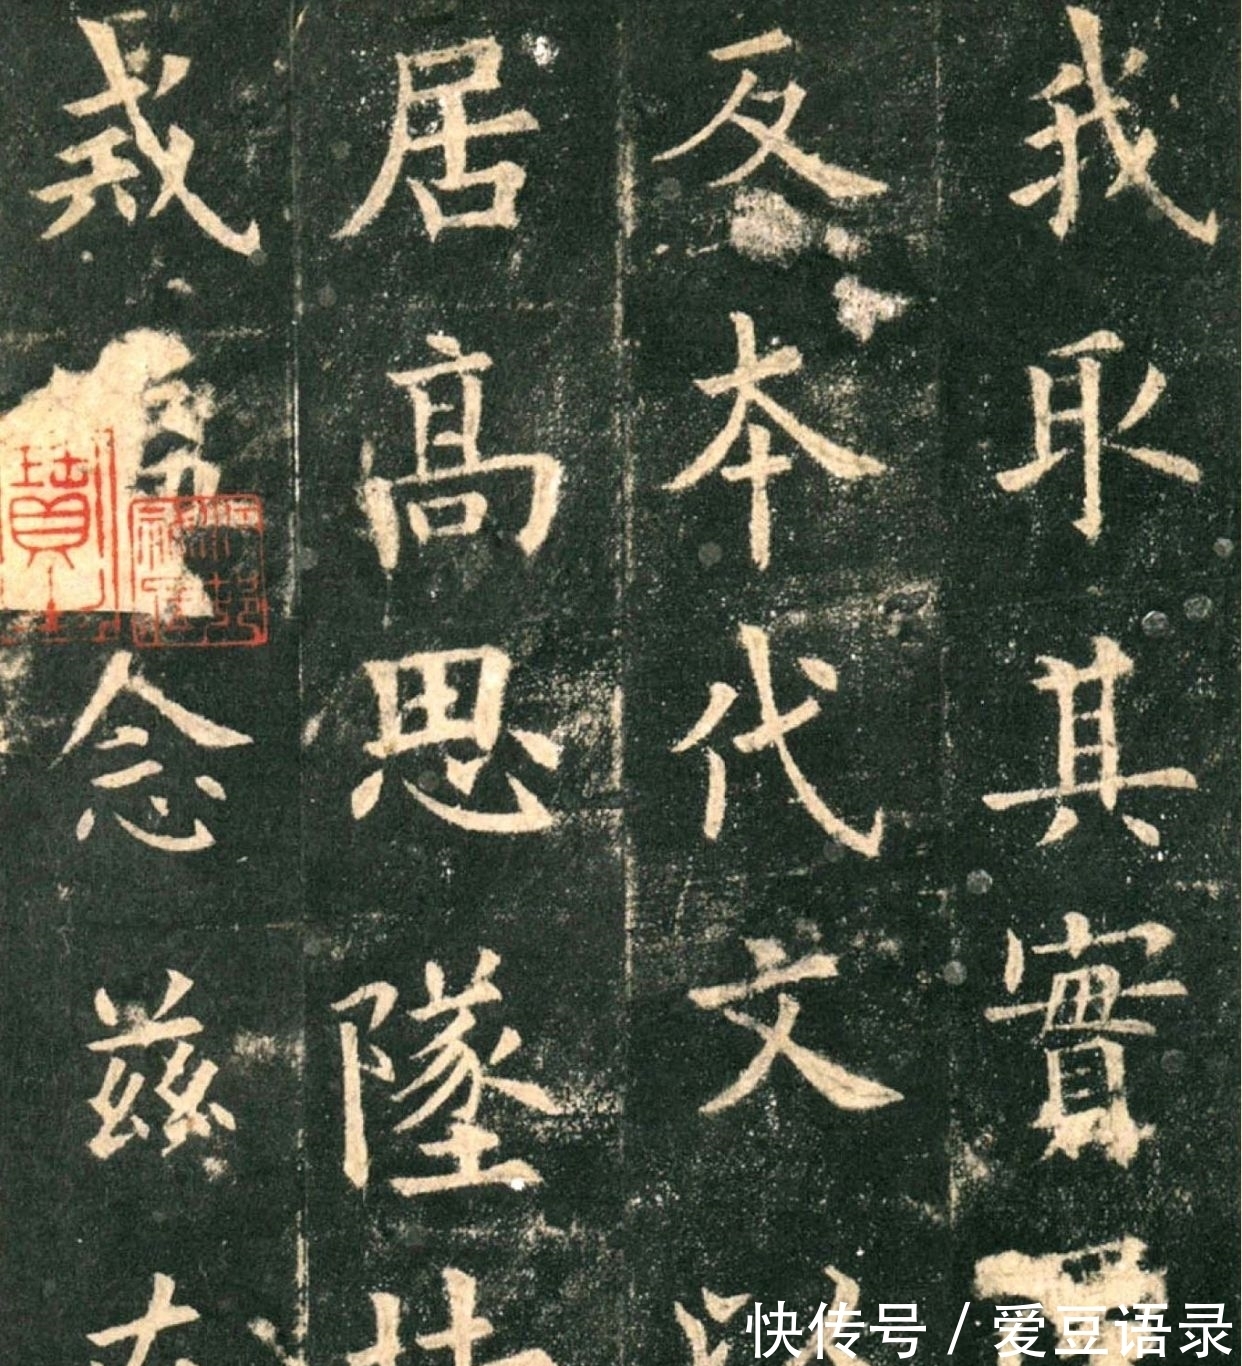 我取其實
反本代文
居高思墜
戒念茲
快传号 / 爱豆语录